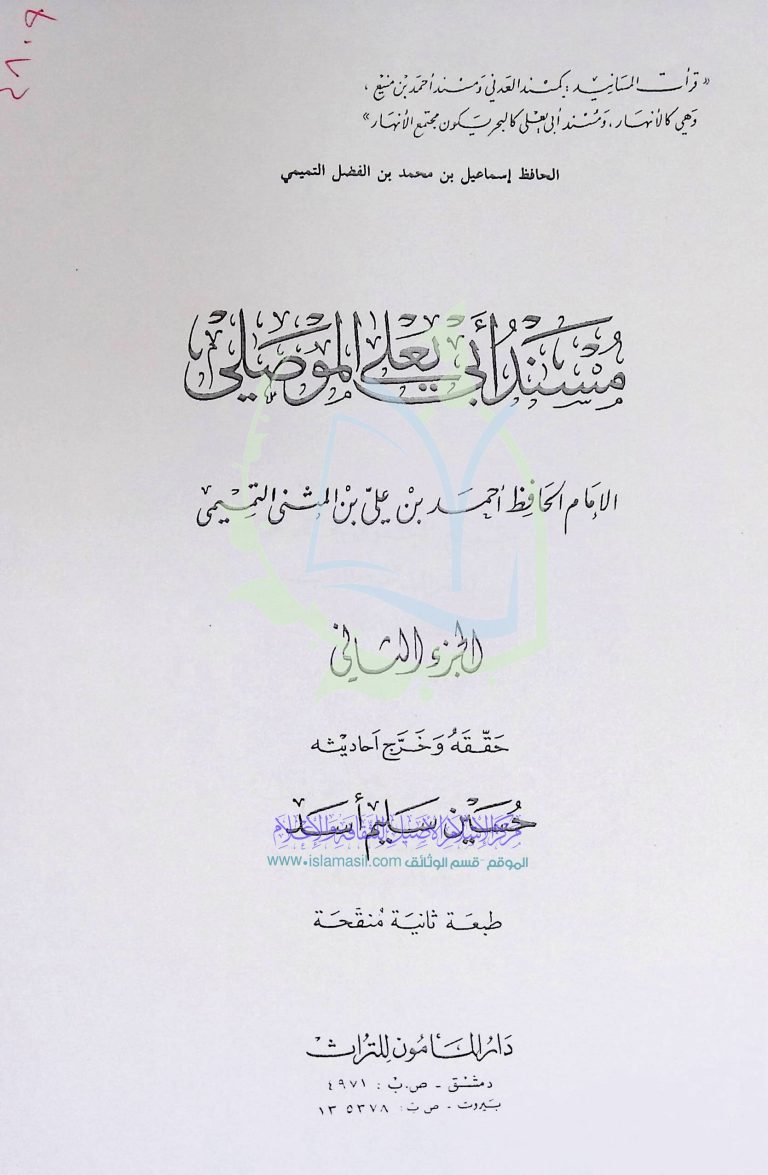 «قرأت المسانيد : كمسند العدني ومسند أحمد بن منيع ،
وهي كالأنهار ، ومسند أبي يعلى كالبحر يكون مجتمع الأنهار»
الحافظ إسماعيل بن محمد بن الفضل التميمي
مُسْنَدُ أَبِي يَعْلَى المَوْصِلِي
الإمام الحافظ أحمد بن علي بن المثنى التميمي
الجزء الثاني
حَقَّقَهُ وَخَرَّج أحاديثه
حُسَيْن سَليم أَسَد
مركز الإسلام الأصيل للثقافة والإعلام
الموقع - قسم الوثائق www.islamasil.com
طبعة ثانية مُنقَّحة
دَار المَأمُون للتراث
دمشق - ص.ب : ٤٩٧١
بيروت - ص.ب : ٥٣٧٨ ١٣